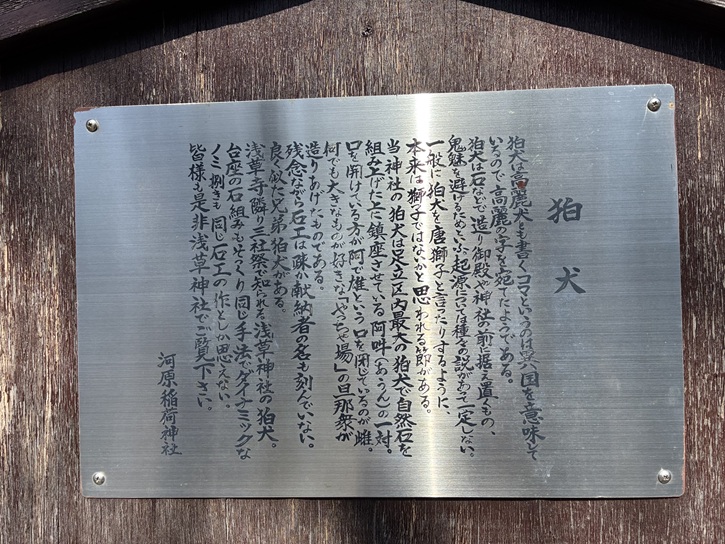 狛犬
狛犬は高麗犬とも書くコマというのは異国を意味して
いるので高麗の字を宛てたようである。
狛犬は石などで造り御殿や神社の前に据え置くもの、
鬼魅を避けるためといい起源に就ては種々の説があって一定しない。
一般に狛犬を唐獅子と言ったりするように、
本来は獅子ではないかと思われる節がある。
当神社の狛犬は足立区内最大の狛犬で自然石を
組み上げた上に鎮座させている阿吽(あうん)の一対。
口を開けている方が阿で雄という口を閉じているのが雌。
何でも大きなものが好きな「やっちゃ場」の旦那衆が
造りあげたものである。
残念ながら石工は疎か献納者の名も刻んでいない。
良く似た兄弟狛犬がある。
浅草寺隣り三社祭で知られる浅草神社の狛犬。
台座の石組みもそっくり同じ手法でダイナミックな
ノミ捌きも同じ石工の作としか思えない。
皆様も是非浅草神社でご覧下さい。
河原稲荷神社